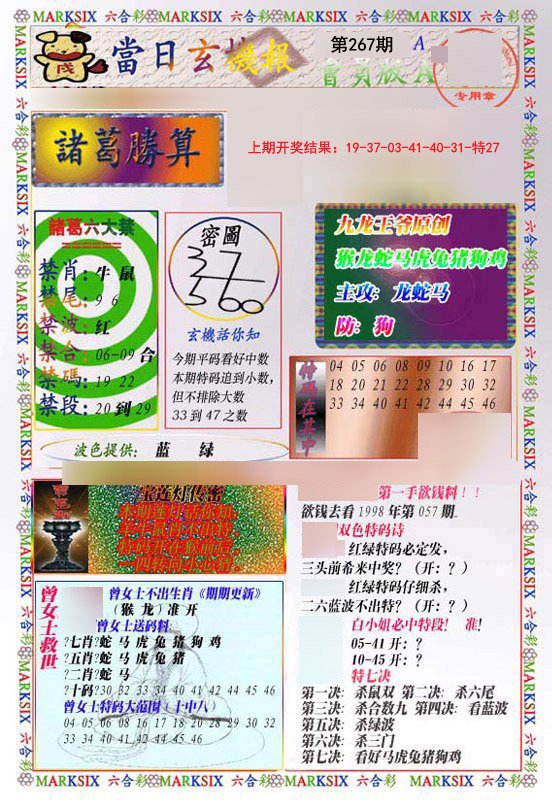 MARKSIX 六合彩 MARKSIX 六合彩 MARKSIX 六合彩 MARKSIX 六合彩
當日玄機報
第267期
A
會員版A
专用章
諸葛勝算
上期开奖结果：19-37-03-41-40-31-特27
諸葛六大禁
禁肖：牛 鼠
禁尾：9 6
禁波：红
禁合：06-09 合
禁碼：19 22
禁段：20 到 29
密圖
37
3600
玄機话你知
今期平码看好中数
本期特码追到小数，
但不排除大数
33 到 47 之数
九龙王爷原创
猴龙蛇马虎兔猪狗鸡
主攻：龙蛇马
防：狗
特码在其中
04 05 06 08 09 10 16 17
18 20 21 22 28 29 30 32
33 34 40 41 42 44 45 46
波色提供： 蓝 绿
宝莲灯传密
第一手欲钱料！！
欲钱去看 1998 年第 057 期
双色特码诗
红绿特码必定发，
三头前希来中奖？（开：？）
红绿特码仔细杀，
二六蓝波不出特？（开：？）
白小姐必中特段！ 准！
05-41 开：？
10-45 开：？
特七决
第一决：杀鼠双 第二决：杀六尾
第三决：杀合数九 第四决：看蓝波
第五决：杀绿波
第六决：杀三门
第七决：看好马虎兔猪狗鸡
曾女士救世
曾女士不出生肖《期期更新》
（猴 龙）准 开
曾女士送码料
?七肖?蛇 马 虎 兔 猪 狗 鸡
?五肖?蛇 马 虎 兔 猪
?二肖?蛇 马
?十码?30 32 33 34 40 41 42 44 45 46
曾女士特码大范围（十中八）
04 05 06 08 09 10 16 17 18 20 28 29 30 32
33 34 40 41 42 44 45 46
MARKSIX 六合彩 MARKSIX 六合彩 MARKSIX 六合彩 MARKSIX 六合彩